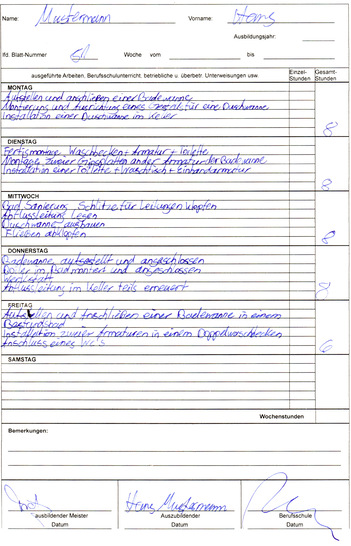 Name: Mustermann Vorname: Hans
Ausbildungsjahr:
lfd. Blatt-Nummer 61 Woche vom bis
ausgeführte Arbeiten, Berufsschulunterricht, betriebliche u. überbetr. Unterweisungen usw. Einzel-Stunden Gesamt-Stunden
MONTAG
Aufstellen und anschließen einer Badewanne
Montierung und Ausrichtung eines Gestells für eine Duschwanne
Installation einer Duschwanne im Keller
8
DIENSTAG
Fertigmontage Waschbecken + Armatur + Toilette
Montage zweier Gipsplatten an der Armatur der Badewanne
Installation einer Toilette + Waschtisch + Einhandarmatur
8
MITTWOCH
Bad Sanierung Schlitze für Leitungen klopfen
Abflussleitung Legen
Duschwanne ausbauen
Fließen abklopfen
8
DONNERSTAG
Badewanne aufgestellt und angeschlossen
Boiler im Bad montiert und angeschlossen
Werkstatt
Abflussleitung im Keller teils erneuert
8
FREITAG
Aufstellen und Anschließen einer Badewanne in einem
Installation zweier Armaturen in einem Doppelwaschbecken
Anschluss eines Wc's
6
SAMSTAG
Wochenstunden
Bemerkungen:
Hans Mustermann
ausbildender Meister Auszubildender Berufsschule
Datum Datum Datum